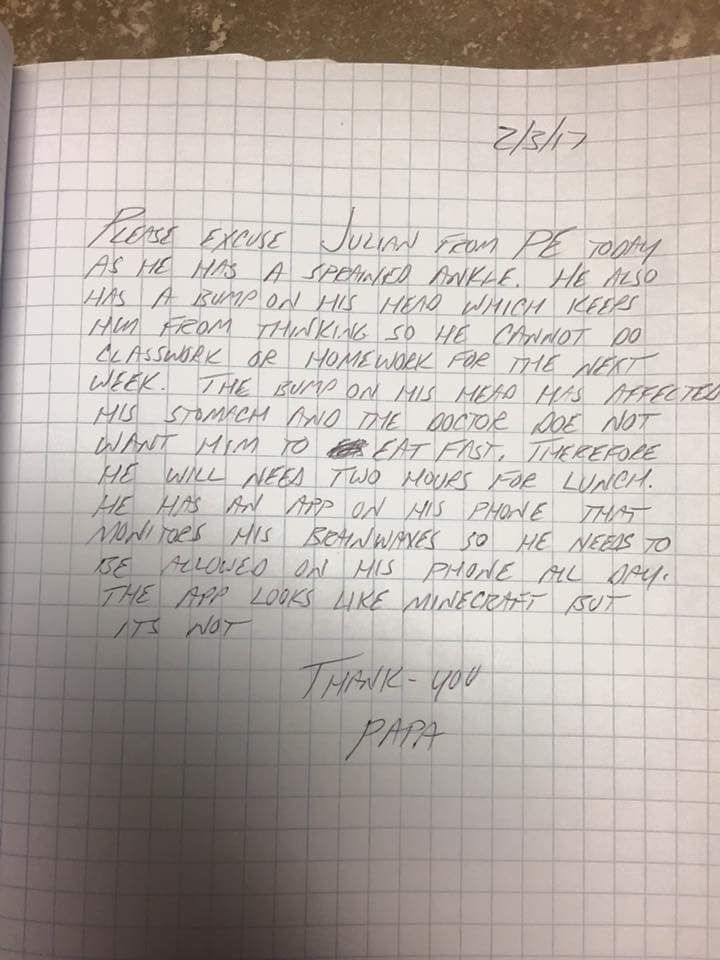 2/3/17
PLEASE EXCUSE JULIAN FROM PE TODAY
AS HE HAS A SPRAINED ANKLE. HE ALSO
HAS A BUMP ON HIS HEAD WHICH KEEPS
HIM FROM THINKING SO HE CANNOT DO
CLASSWORK OR HOMEWORK FOR THE NEXT
WEEK. THE BUMP ON HIS HEAD HAS AFFECTED
HIS STOMACH AND THE DOCTOR DOE NOT
WANT HIM TO EAT FAST. THEREFORE
HE WILL NEED TWO HOURS FOR LUNCH.
HE HAS AN APP ON HIS PHONE THAT
MONITORS HIS BRAINWAVES SO HE NEEDS TO
BE ALLOWED ON HIS PHONE ALL DAY.
THE APP LOOKS LIKE MINECRAFT BUT
ITS NOT
THANK-YOU
PAPA